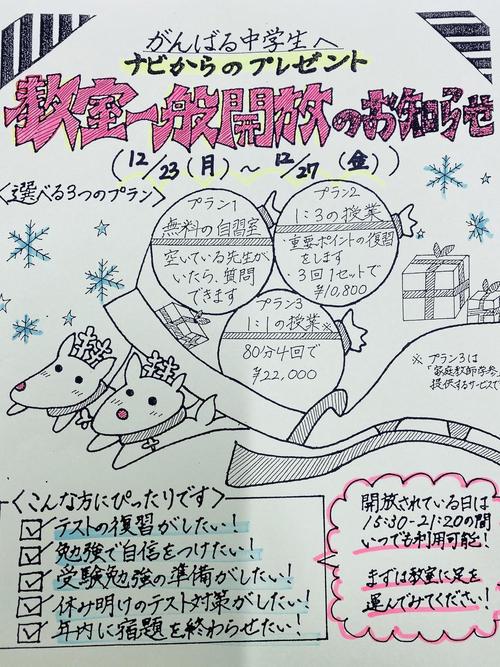 がんばる中学生へ
ナビからのプレゼント
教室一般開放のお知らせ
(12/23(月)～12/27(金))
〈選べる3つのプラン〉
プラン1
無料の自習室
空いている先生が
いたら、質問
できます
プラン2
1:3の授業
・重要ポイントの復習
をします
・3回1セットで
¥10,800
プラン3
1:1の授業※
80分4回で
¥22,000
※ プラン3は
「家庭教師学参」
提供するサービスで
〈こんな方にぴったりです〉
☑ テストの復習がしたい!
☑ 勉強で自信をつけたい!
☑ 受験勉強の準備がしたい!
☑ 休み明けのテスト対策がしたい!
☑ 年内に宿題を終わらせたい!
開放されている日は
15:30-21:20の間
いつでも利用可能!
まずは教室に足を
運んでみてください!